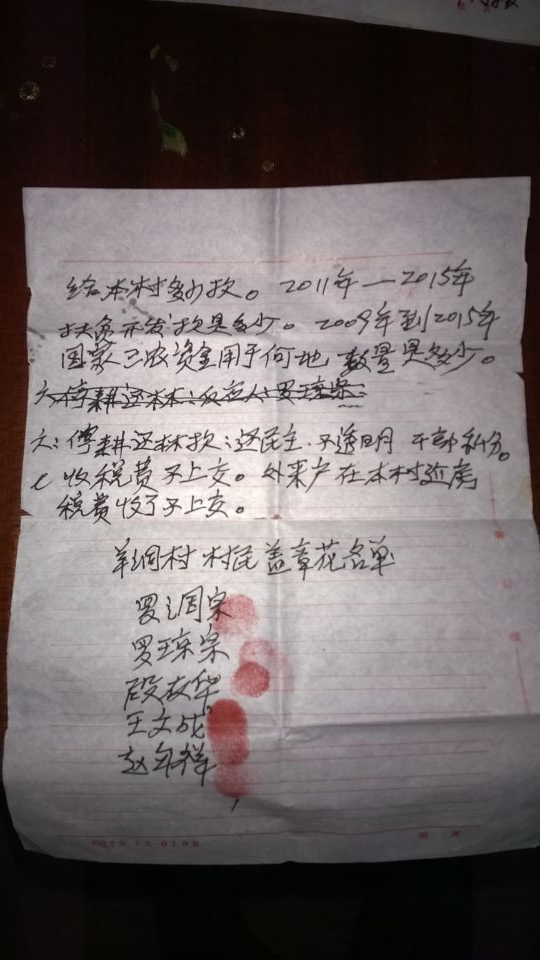 给本村多少款。2011年—2015年
扶贫开发款是多少。2009年到2015年
国家三农资金用于何地 数量是多少。
六停耕还林
六:停耕还林款:还民主 不透明 干部私分。
七 收税费不上交。外来户在本村近房
税费收了不上交。
羊洞村 村民盖章花名单
罗洞宗
罗琼宗
段友华
王文成
赵年祥